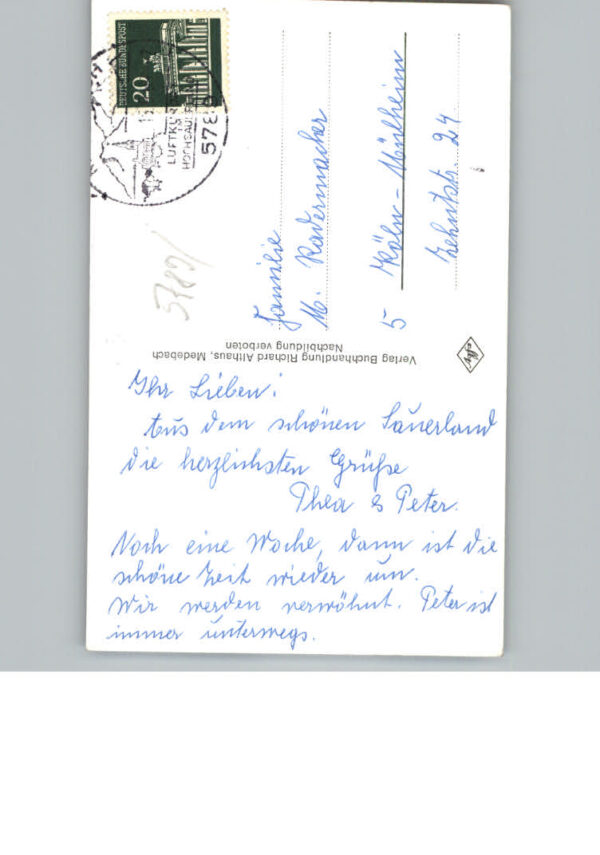 DEUTSCHE BUNDESPOST
20
LUFTKURORT
578
5789/
Familie
M. Radermacher
5 Köln-Mülheim
Zehntstr. 24
Verlag Buchhandlung Richard Althaus, Medebach
Nachbildung verboten
Ihr Lieben!
Aus dem schönen Sauerland
die herzlichsten Grüße
Thea & Peter.
Noch eine Woche, dann ist die
schöne Zeit wieder um.
Wir werden verwöhnt. Peter ist
immer unterwegs.